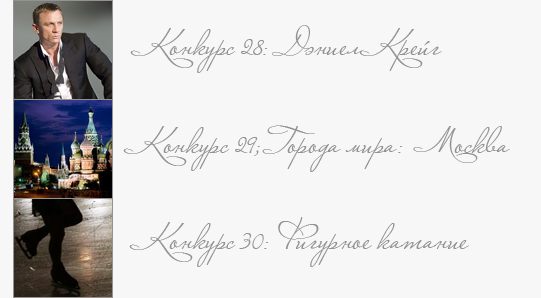 Конкурс 28: Дэниел Крейг
Конкурс 29: Города мира: Москва
Конкурс 30: Фигурное катание